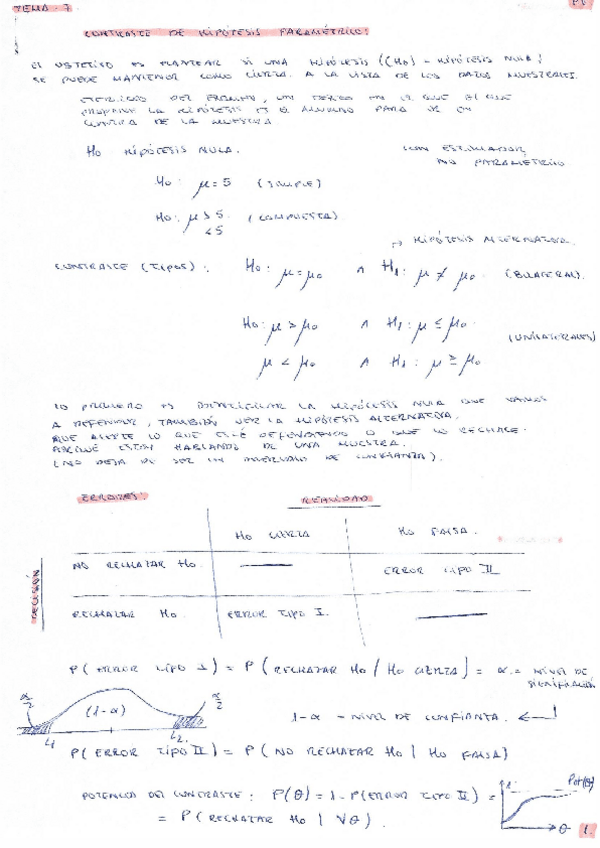 TEMA - 7
CONTRASTE DE HIPÓTESIS PARAMÉTRICO:
El OBJETIVO ES PLANTEAR SI UNA HIPÓTESIS ((H₀) - HIPÓTESIS NULA)
SE PUEDE MANTENER COMO CIERTA. A LA VISTA DE LOS DATOS MUESTRALES.
LA HIPÓTESIS ES EL ALUMNO PARA
CONTRA DE LA MUESTRA
H₀ HIPÓTESIS NULA.
CON ESTIMADOR,
NO PARAMÉTRICO
H₀: μ = 5 (SIMPLE)
H₀: μ > 5 (COMPUESTA)
< 5
→ HIPÓTESIS ALTERNATIVA
CONTRASTE (TIPOS): H₀: μ = μ₀ ∧ H₁: μ ≠ μ₀ (BILATERAL).
H₀: μ > μ₀ ∧ H₁: μ ≤ μ₀
(UNILATERALES)
μ < μ₀ ∧ H₁: μ ≥ μ₀
LO PRIMERO ES IDENTIFICAR LA HIPÓTESIS NULA QUE VAMOS
A DEFENDER, TAMBIÉN VER LA HIPÓTESIS ALTERNATIVA.
QUE ACEPTE LO QUE ESTÉ DEFENDIENDO O QUE LO RECHACE.
PORQUE ESTOY HABLANDO DE UNA MUESTRA.
(NO DEJA DE SER UN INTERVALO DE CONFIANZA).
ERRORES:
REALIDAD
H₀ CIERTA
H₀ FALSA.
DECISIÓN
NO RECHAZAR H₀.
ERROR TIPO II
RECHAZAR H₀.
ERROR TIPO I.
P(ERROR TIPO I) = P(RECHAZAR H₀ / H₀ CIERTA) = α = NIVEL DE
SIGNIFICACIÓN
α/2
(1-α)
α/2
L₁
L₂
1-α - NIVEL DE CONFIANZA.
P(ERROR TIPO II) = P(NO RECHAZAR H₀ | H₀ FALSA)
POTENCIA DEL CONTRASTE: P(θ) = 1 - P(ERROR TIPO II) =
= P(RECHAZAR H₀ | ∀θ).
1
Pot(θ)
θ
1.